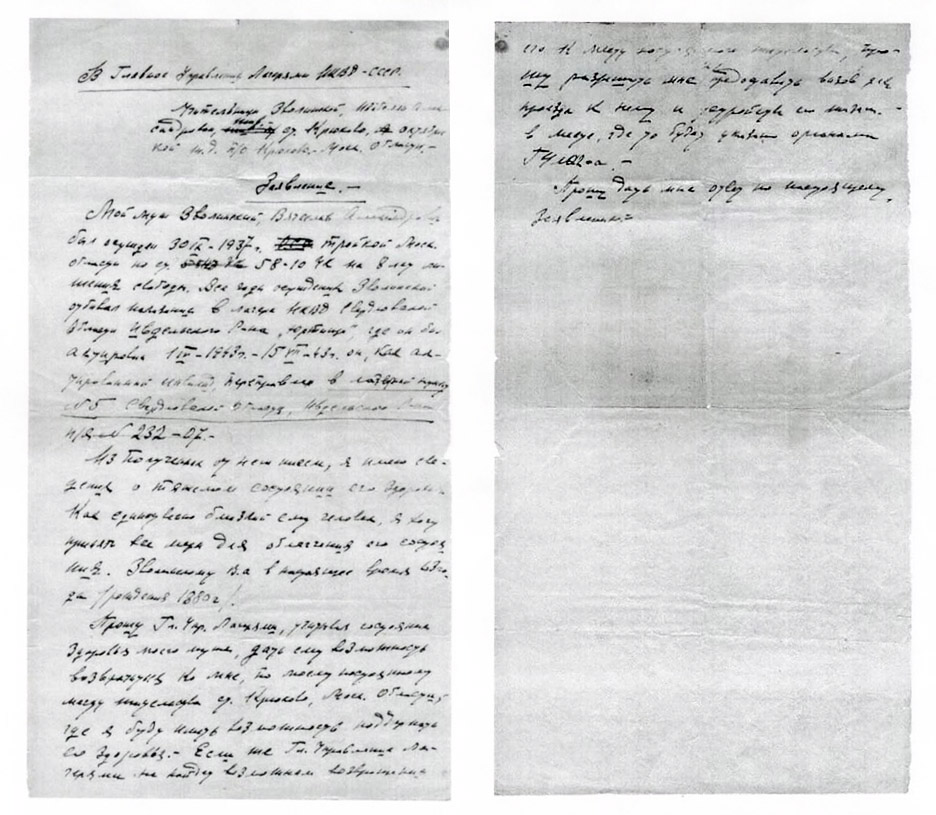 В Главное Управление Лагерями НКВД-СССР.
Жительницы Зволинской,
ст. Крюково, октябрь
ской ж.д. п/о Крюково. Моск. Области.-
Заявление.-
Мой муж Зволинский, Вячеслав Александрович
был осужден 30/IX-1937г. тройкой Моск.
области по ст. 58-10 УК на 8 лет ли-
шения свободы. Все годы осуждения Зволинский
отбывал наказание в лагере НКВД Свердловской
области Ивдельского р-на, где он был
актирован 1943г.-15/VII-43г. он, как ак-
тированный инвалид, переправлен в лагерный пункт
№5 Свердловской области, Ивдельского р-на
п/я № 232-07.-
Из полученных от него писем, я имею све-
дения о тяжелом состоянии его здоровья
Как единственно близкий ему человек, я хочу
принять все меры для облегчения его состоя
ния. Зволинскому В.А. в настоящее время 63 го-
да /рождения 1880г/.
Прошу Гл. Упр. Лагерями, учитывая состояние
здоровья моего мужа, дать ему возможность
возвратиться ко мне, по моему постоянному
месту жительства ст. Крюково, Моск. Области,
где я буду иметь возможность поддержать
его здоровье.- Если же Гл. Управление Ла-
герями не найдет возможным возвращения
его к месту постоянного жительства, про-
шу разрешить мне предоставить вызов для
проезда к нему и устройства его жизни
в месте, где то будет указано органами
ГУЛАГа -
Прошу дать мне ответ по настоящему
заявлению-